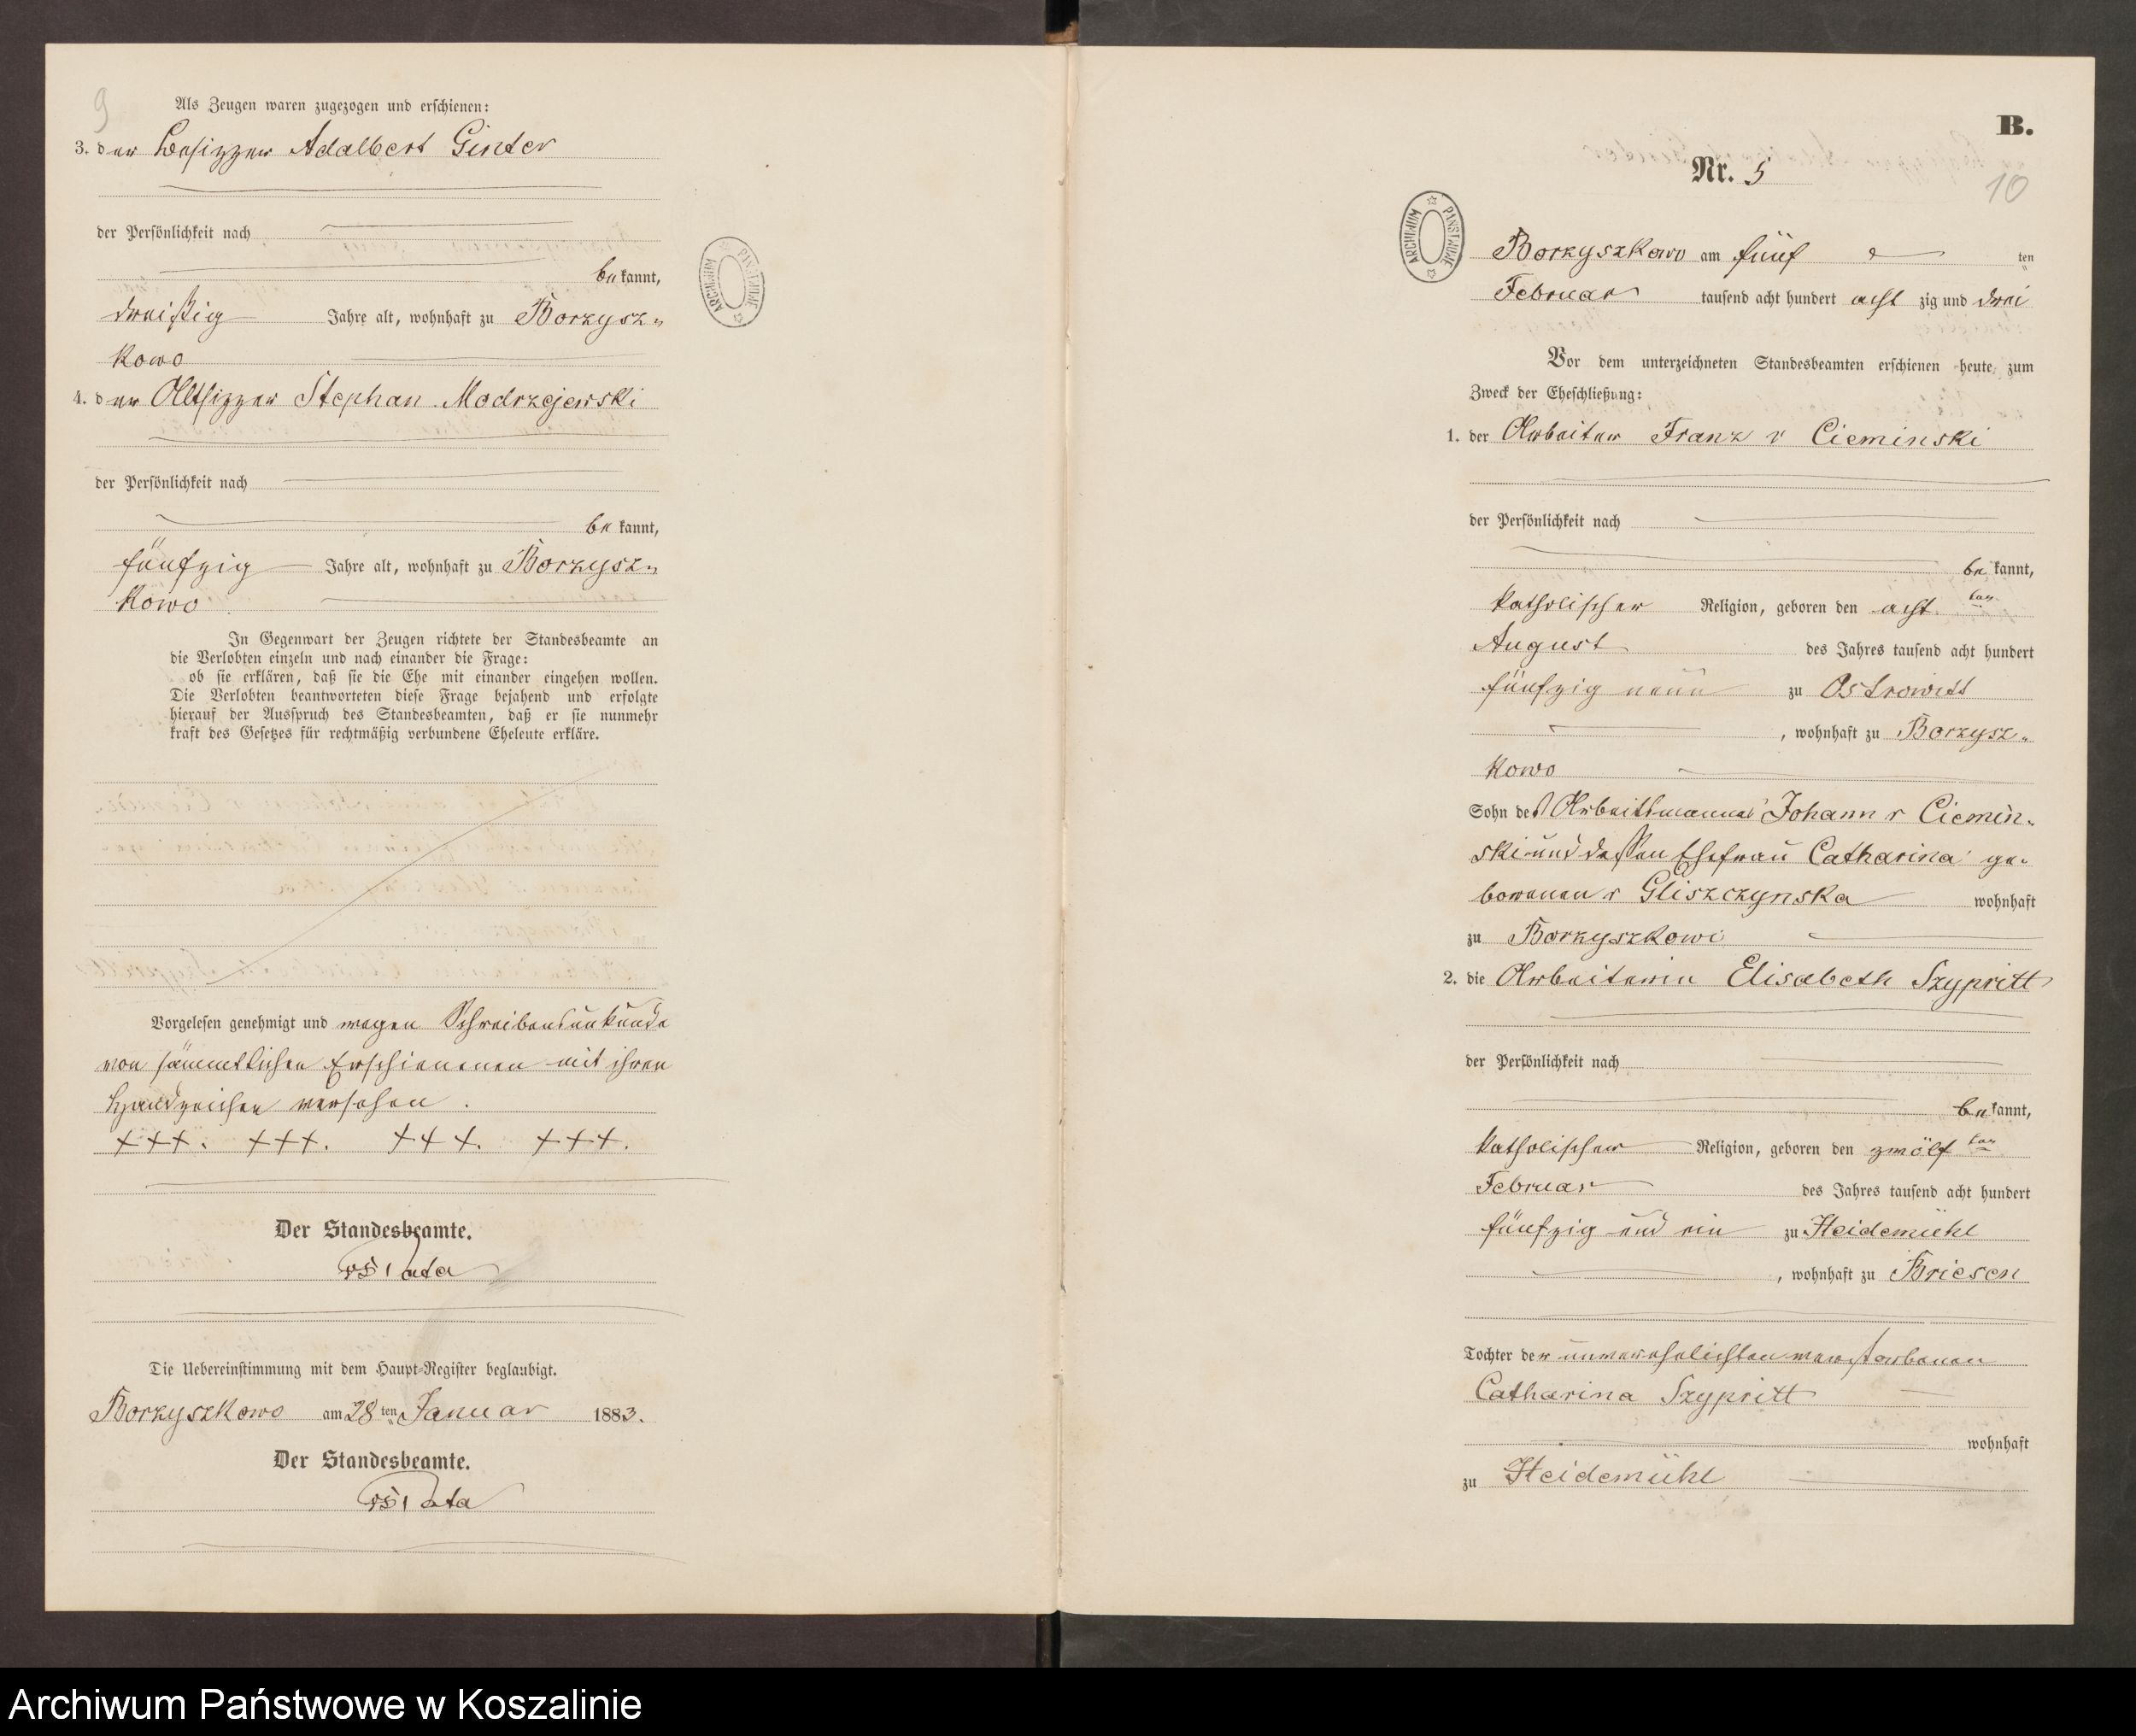 9
Als Zeugen waren zugezogen und erschienen:
3. der Besizzer Adalbert Ginter
der Persönlichkeit nach
be kannt,
dreißig Jahre alt, wohnhaft zu Borzysz-
kowo
4. der Altsizzer Stephan Modrzejewski
der Persönlichkeit nach
be kannt,
fünfzig Jahre alt, wohnhaft zu Borzysz-
kowo
In Gegenwart der Zeugen richtete der Standesbeamte an
die Verlobten einzeln und nach einander die Frage:
ob sie erklären, daß sie die Ehe mit einander eingehen wollen.
Die Verlobten beantworteten diese Frage bejahend und erfolgte
hierauf der Ausspruch des Standesbeamten, daß er sie nunmehr
kraft des Gesetzes für rechtmäßig verbundene Eheleute erkläre.
Vorgelesen genehmigt und wegen Schreibensunkunde
von sämmtlichen Erschienenen mit ihren
Handzeichen versehen.
+++. +++. +++. +++.
Der Standesbeamte.
Die Uebereinstimmung mit dem Haupt-Register beglaubigt.
Borzyszkowo am 28 ten Januar 1883.
Der Standesbeamte.
ARCHIWUM PAŃSTWOWE
B.
Nr. 5
10
ARCHIWUM PAŃSTWOWE
Borzyszkowo am fünf ten
Februar tausend acht hundert acht zig und drei
Vor dem unterzeichneten Standesbeamten erschienen heute, zum
Zweck der Eheschließung:
1. der Arbeiter Franz v Cieminski
der Persönlichkeit nach
be kannt,
katholischer Religion, geboren den acht ten
August des Jahres tausend acht hundert
fünfzig neun zu Ostrowitt
, wohnhaft zu Borzysz-
kowo
Sohn des Arbeitsmannes Johann v Ciemin-
ski und dessen Ehefrau Catharina ge-
borenen v Gliszczynska wohnhaft
zu Borzyszkowo
2. die Arbeiterin Elisabeth Szypritt
der Persönlichkeit nach
be kannt,
katholischer Religion, geboren den zwölf ten
Februar des Jahres tausend acht hundert
fünfzig und ein zu Heidemühl
, wohnhaft zu Briesen
Tochter der unverehelichten verstorbenen
Catharina Szypritt
wohnhaft
zu Heidemühl
Archiwum Państwowe w Koszalinie